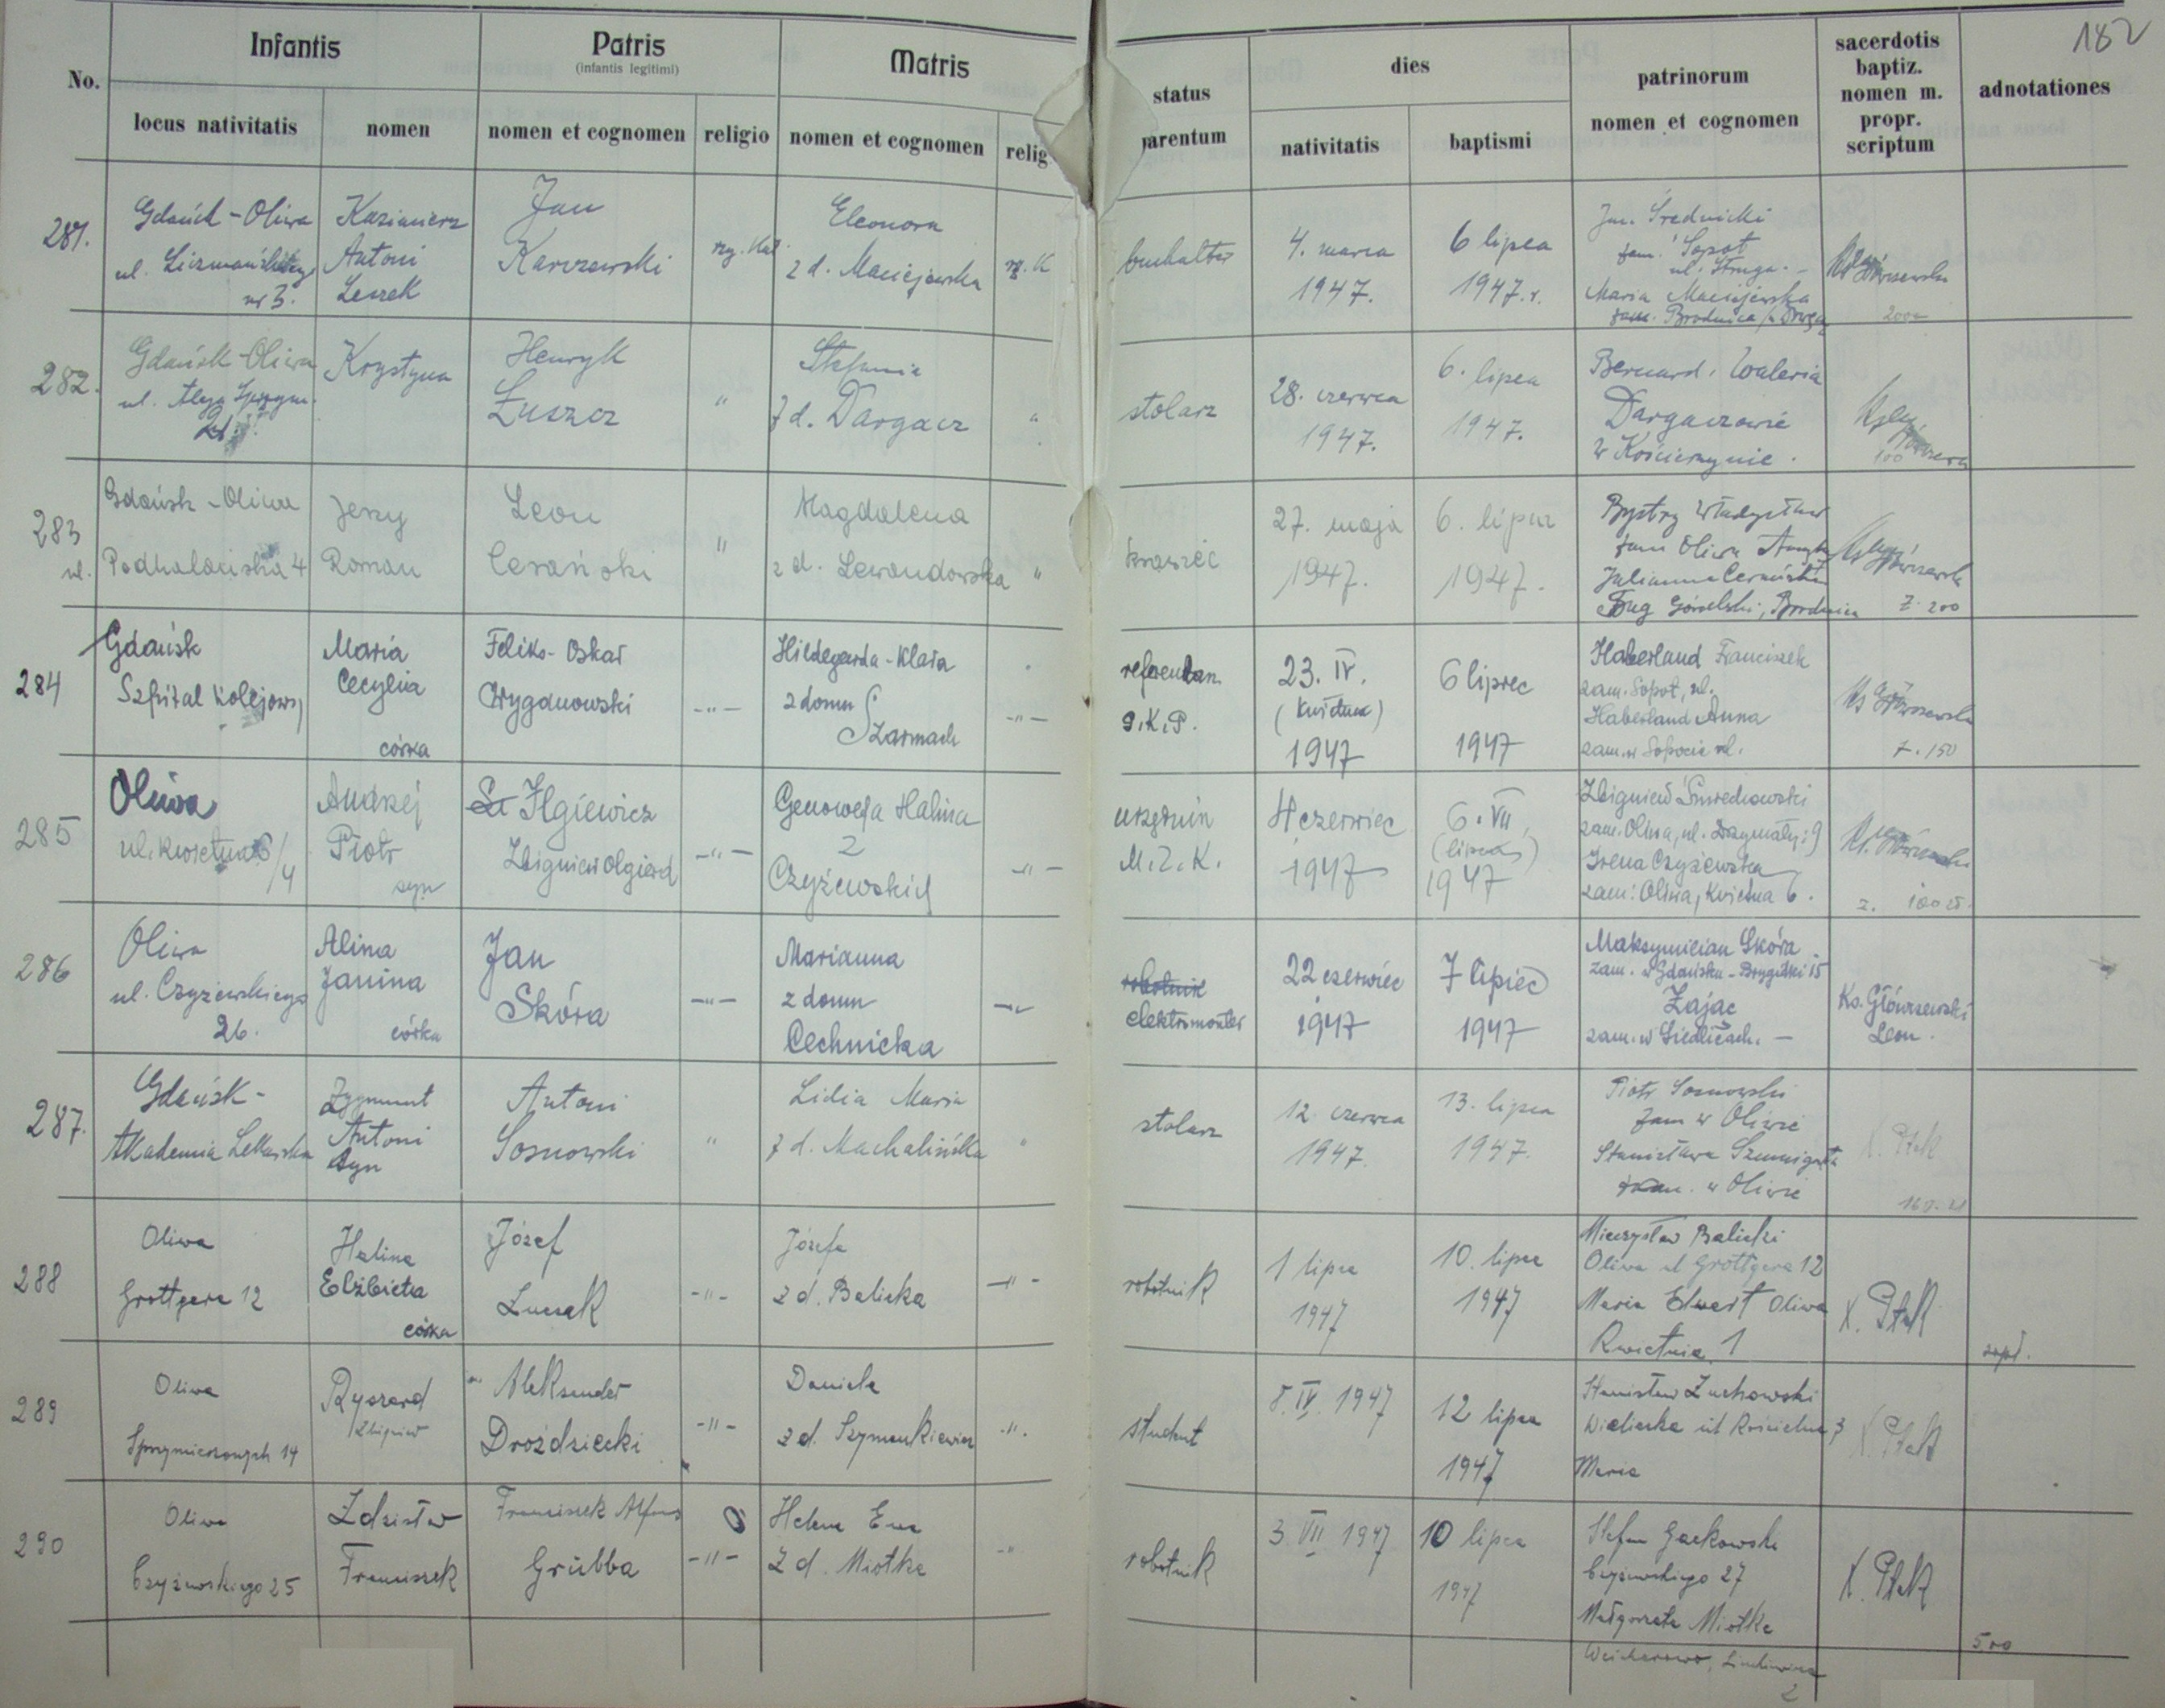 182
No.
Infantis
Patris
(infantis legitimi)
Matris
status
parentum
dies
patrinorum
nomen et cognomen
sacerdotis
baptiz.
nomen m.
propr.
scriptum
adnotationes
locus nativitatis
nomen
nomen et cognomen
religio
nomen et cognomen
relig
nativitatis
baptismi
281.
Gdańsk - Oliwa
ul.
nr 3.
Kazimierz
Antoni
Leszek
Jan
Karczewski
rzy. Kat.
Eleonora
z d. Maciejewska
rz. K
buchalter
4. marca
1947.
6 lipca
1947. r.
Jan. Średnicki
zam. Sopot
ul. Struga. -
Maria Maciejewska
zam. Brodnica n/Drwęcą
200
282.
Gdańsk-Oliwa
ul.
Krystyna
Henryk
Łuszcz
"
Stefania
z d. Dargacz
"
stolarz
28. czerwca
1947.
6. lipca
1947.
Bernard i Waleria
Dargaczowie
w Kościerzynie.
100
283
Gdańsk - Oliwa
ul. Podhalańska 4
Jerzy
Roman
Leon
Cerański
"
Magdalena
z d. Lewandowska
"
krawiec
27. maja
1947.
6. lipca
1947.
Bystry Władysław
zam Oliwa
Julianna
Brodnica
z. 200
284
Gdańsk
Szpital Kolejowy
Maria
Cecylia
córka
Feliks-Oskar
Wygdnowski
-"-
Hildegarda-Klara
z domu
Szarmach
-"-
P.K.P.
23. IV.
(kwietnia)
1947
6 lipiec
1947
Haberland Franciszek
zam. Sopot, ul.
Haberland Anna
zam. w Sopocie ul.
z. 150
285
Oliwa
ul. Kwietna 6/4
Andrzej
Piotr
syn
Ilgiewicz
Zbigniew Olgierd
-"-
Genowefa Halina
z
Czyżewskich
-"-
urzędnin
M.Z.K.
4 czerwiec
1947
6. VII
(lipca)
1947
Zbigniew
zam. Oliwa, ul. Drzymały 9
Irena Czyżewska
zam: Oliwa, Kwietna 6.
z. 100 zł.
286
Oliwa
ul. Czyżewskiego
26.
Alina
Janina
córka
Jan
Skóra
-"-
Marianna
z domu
Cechnicka
-"-
robotnik
elektromonter
22 czerwiec
1947
7 lipiec
1947
Maksymilian Skóra
zam. w Gdańsku - Brygidki 15
Zając
zam. w Siedlcach. -
Ks. Główczewski
Leon.
287.
Gdańsk -
Akademia Lekarska
Zygmunt
Antoni
syn
Antoni
Sosnowski
"
Lidia Maria
z d. Machalińska
"
stolarz
12. czerwca
1947.
13. lipca
1947.
Piotr Sosnowski
zam w Oliwie
Stanisława
zam. w Oliwie
X. Ptak
288
Oliwa
Grottgera 12
Halina
Elżbieta
córka
Józef
Luczak
-"-
Józefa
z d. Balicka
-"-
robotnik
1 lipca
1947
10. lipca
1947
Mieczysław Balicki
Oliwa ul Grottgera 12
Maria Elwart Oliwa
Kwietnia 1
X. Ptak
289
Oliwa
Sprzymierzonych 14
Ryszard
Zbigniew
Aleksander
Droździecki
-"-
Daniela
z d. Szymankiewicz
-"-
student
8. IV. 1947
12 lipca
1947
Stanisław Żuchowski
Wieliczka ul Kościelna 3
Maria
X. Ptak
290
Oliwa
Czyżewskiego 25
Zdzisław
Franciszek
Franciszek Alfons
Grubba
-"-
Helena Ewa
z d. Miotke
-"-
robotnik
3 VII 1947
10 lipca
1947
Stefan Gackowski
Czyżewskiego 27
Małgorzata Miotke
Weicherowo,
2
X. Ptak
500